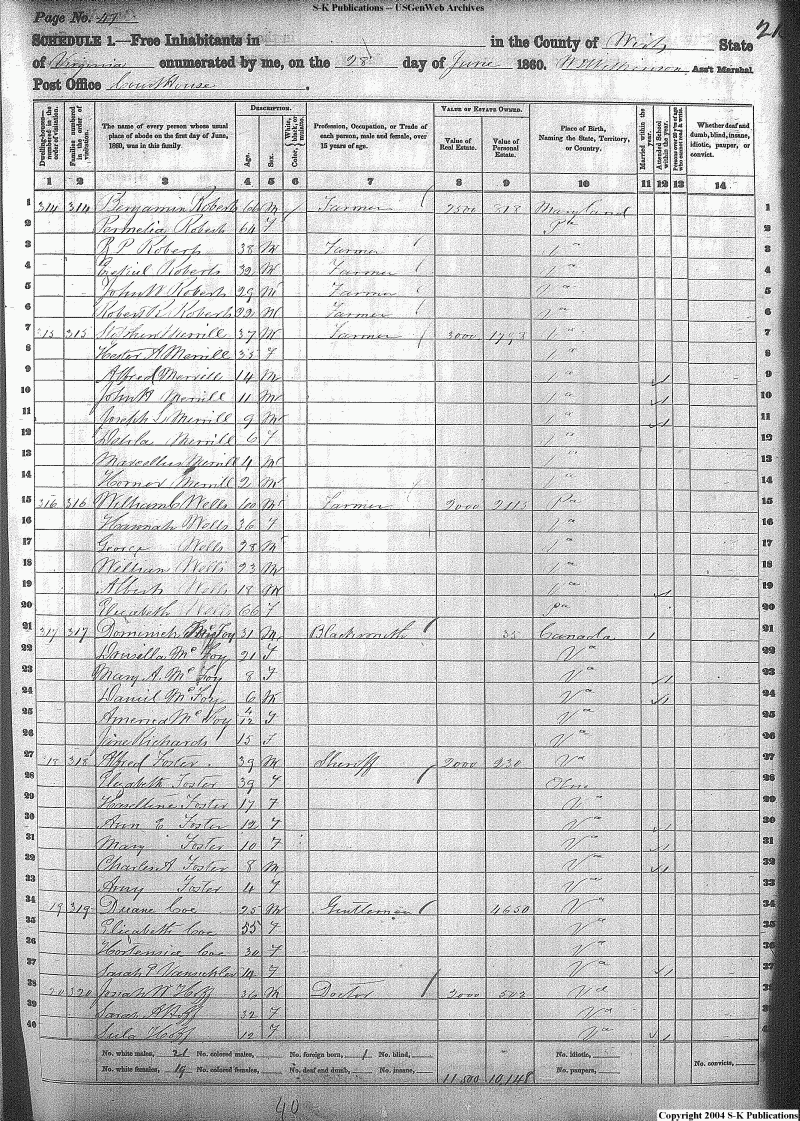 S-K Publications – USGenWeb Archives
Page No. 47
21
SCHEDULE 1.—Free Inhabitants in in the County of Wirt State
of Virginia enumerated by me, on the 28 day of June 1860. Wilkinson Ass't Marshal
Post Office Court House
Dwelling-houses numbered in the order of visitation.
Families numbered in the order of visitation.
The name of every person whose usual place of abode on the first day of June, 1860, was in this family
DESCRIPTION.
Age.
Sex.
Color, White, black, or mulatto.
Profession, Occupation, or Trade of each person, male and female, over 15 years of age.
VALUE OF ESTATE OWNED.
Value of Real Estate.
Value of Personal Estate.
Place of Birth, Naming the State, Territory, or Country.
Married within the year.
Attended School within the year.
Persons over 20 y'rs of age who cannot read & write.
Whether deaf and dumb, blind, insane, idiotic, pauper, or convict.
1 2 3 4 5 6 7 8 9 10 11 12 13 14
1 314 314 Benjamin Roberts 66 M Farmer 2500 818 Maryland 1
2 Permelia Roberts 64 F Pa 2
3 R P Roberts 38 M Farmer " 3
4 Ezekiel Roberts 32 M Farmer " 4
5 John W Roberts 29 M Farmer " 5
6 Robert Roberts 22 M Farmer " 6
7 315 315 Merrill 37 M Farmer 3000 1793 " 7
8 Hester A Merrill 35 F " 8
9 Alfred Merrill 14 M " 9
10 John Merrill 11 M " 10
11 Joseph S Merrill 9 M " 11
12 Merrill 6 F " 12
13 Marcellus Merrill 4 M " 13
14 Homer Merrill 2 M " 14
15 316 316 Wells M Farmer 2000 2113 Pa 15
16 Hannah Wells 36 F " 16
17 George Wells 28 M " 17
18 William Wells 23 M " 18
19 Albert Wells 18 M " 19
20 Elizabeth Wells 66 F Pa 20
21 317 317 Dominick McFoy 31 M Blacksmith 35 Canada 1 21
22 Mc Foy 21 F Va 22
23 Mary A. Mc Foy 8 F Va 23
24 Daniel Mc Foy 6 M Va 24
25 Mc Foy 4/12 F Va 25
26 Jane Richards 15 F Va 26
27 318 318 Alfred Foster 39 M Sheriff 2000 230 Va 27
28 Elizabeth Foster 39 F Ohio 28
29 Haseltine Foster 17 F Va 29
30 Ann E. Foster 12 F Va 30
31 Mary Foster 10 F Va 31
32 Charles A Foster 8 M Va 32
33 Foster 4 F Va 33
34 19 319 Duane Coe 25 M Gentleman 4650 Va 34
35 Elizabeth Coe 55 F Va 35
36 Hortensia Coe 30 F Va 36
37 Sarah P. 14 F Va 37
38 20 320 Josiah W Hoff 36 M Doctor 2000 502 Va 38
39 Sarah Hoff 32 F Va 39
40 Lula Hoff 12 F Va 40
No. white males, 21 No. colored males, No. foreign born, 1 No. blind, No. idiotic,
No. white females, 19 No. colored females, No. deaf and dumb, No. insane, 11,500 10,148 No. paupers, No. convicts,
40
Copyright 2004 S-K Publications